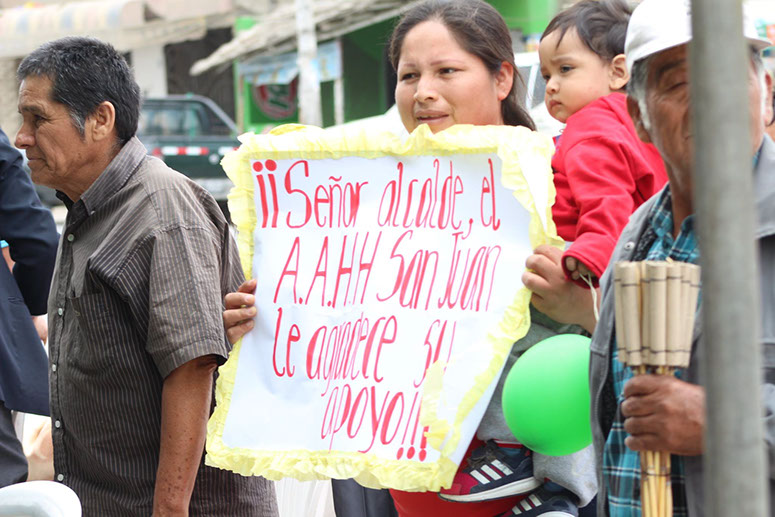 ¡¡Señor alcalde, el
A.A.H.H San Juan
le agradece su
apoyo!!!